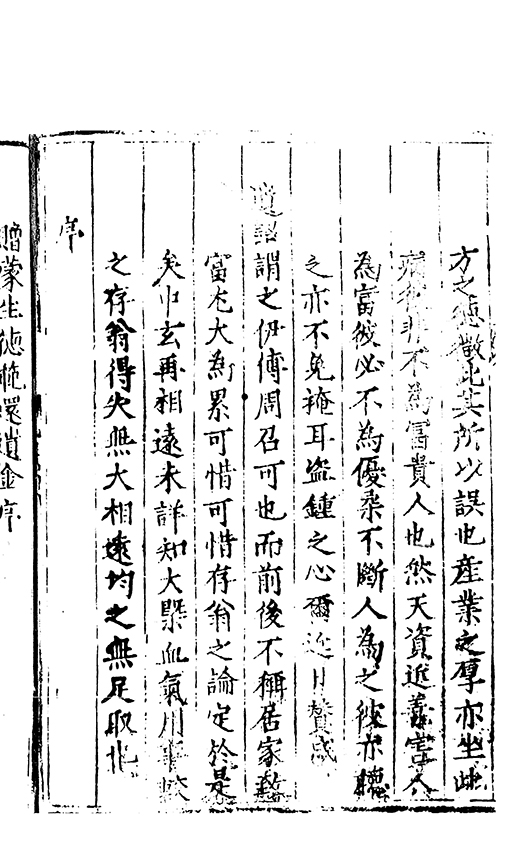 方之德敬此其所以誤也產業之厚亦坐此
病後非不為富貴人也然天資近善害人
為富彼必不為優柔不斷人為之彼亦聽
之亦不免掩耳盜鍾之心爾近日贊成
遺詔謂之伊傅周召可也而前後不稱居家
富尤大為累可惜可惜存翁之論定於是
矣中玄再相遠未詳知大槩血氣用事
之存翁得失無大相遠均之無足取也
序
贈蒙生德脆還道金序